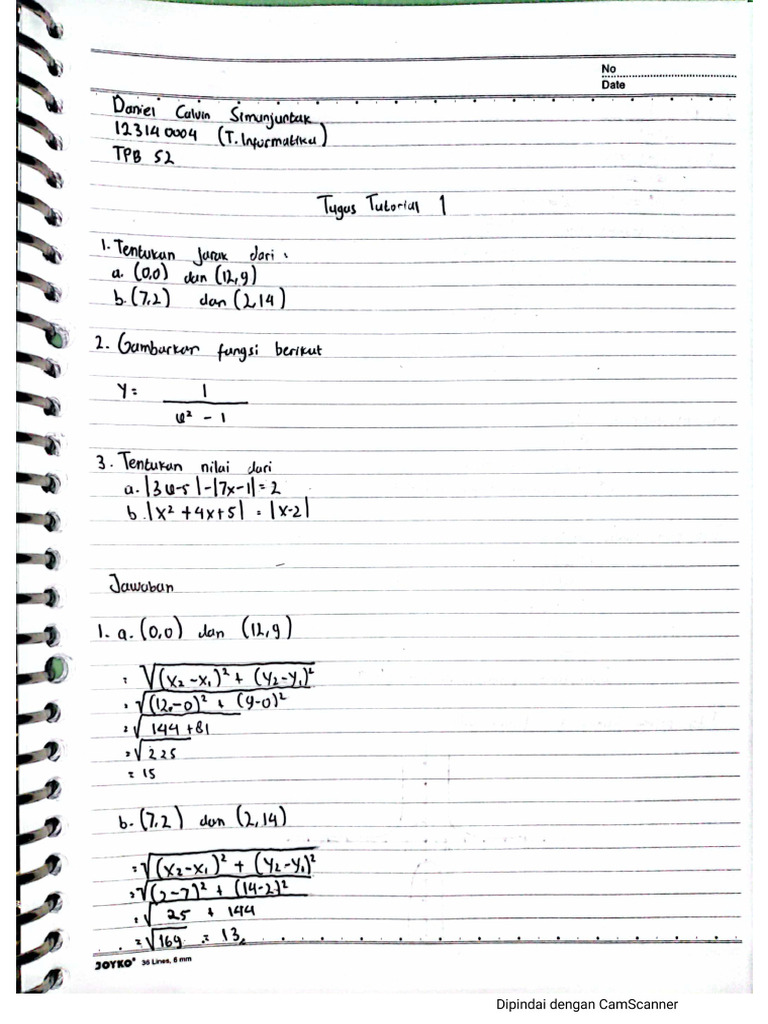 No
Date
Daniel Calvin Simanjuntak
123140004 (T. Informatika)
TPB 52
Tugas Tutorial 1
1. Tentukan Jarak dari :
a. (0,0) dan (12,9)
b. (7,2) dan (2,14)
2. Gambarkan fungsi berikut
Y = 1
x² - 1
3. Tentukan nilai dari
a. |3x-5| - |7x-1| = 2
b. |x² + 4x+5| = |x-2|
Jawaban
1. a. (0,0) dan (12,9)
= √(x₂-x₁)² + (y₂-y₁)²
= √(12-0)² + (9-0)²
= √144 + 81
= √225
= 15
b. (7,2) dan (2,14)
= √(x₂-x₁)² + (y₂-y₁)²
= √(2-7)² + (14-2)²
= √25 + 144
= √169 = 13
JOYKO® 36 Lines, 6 mm
Dipindai dengan CamScanner